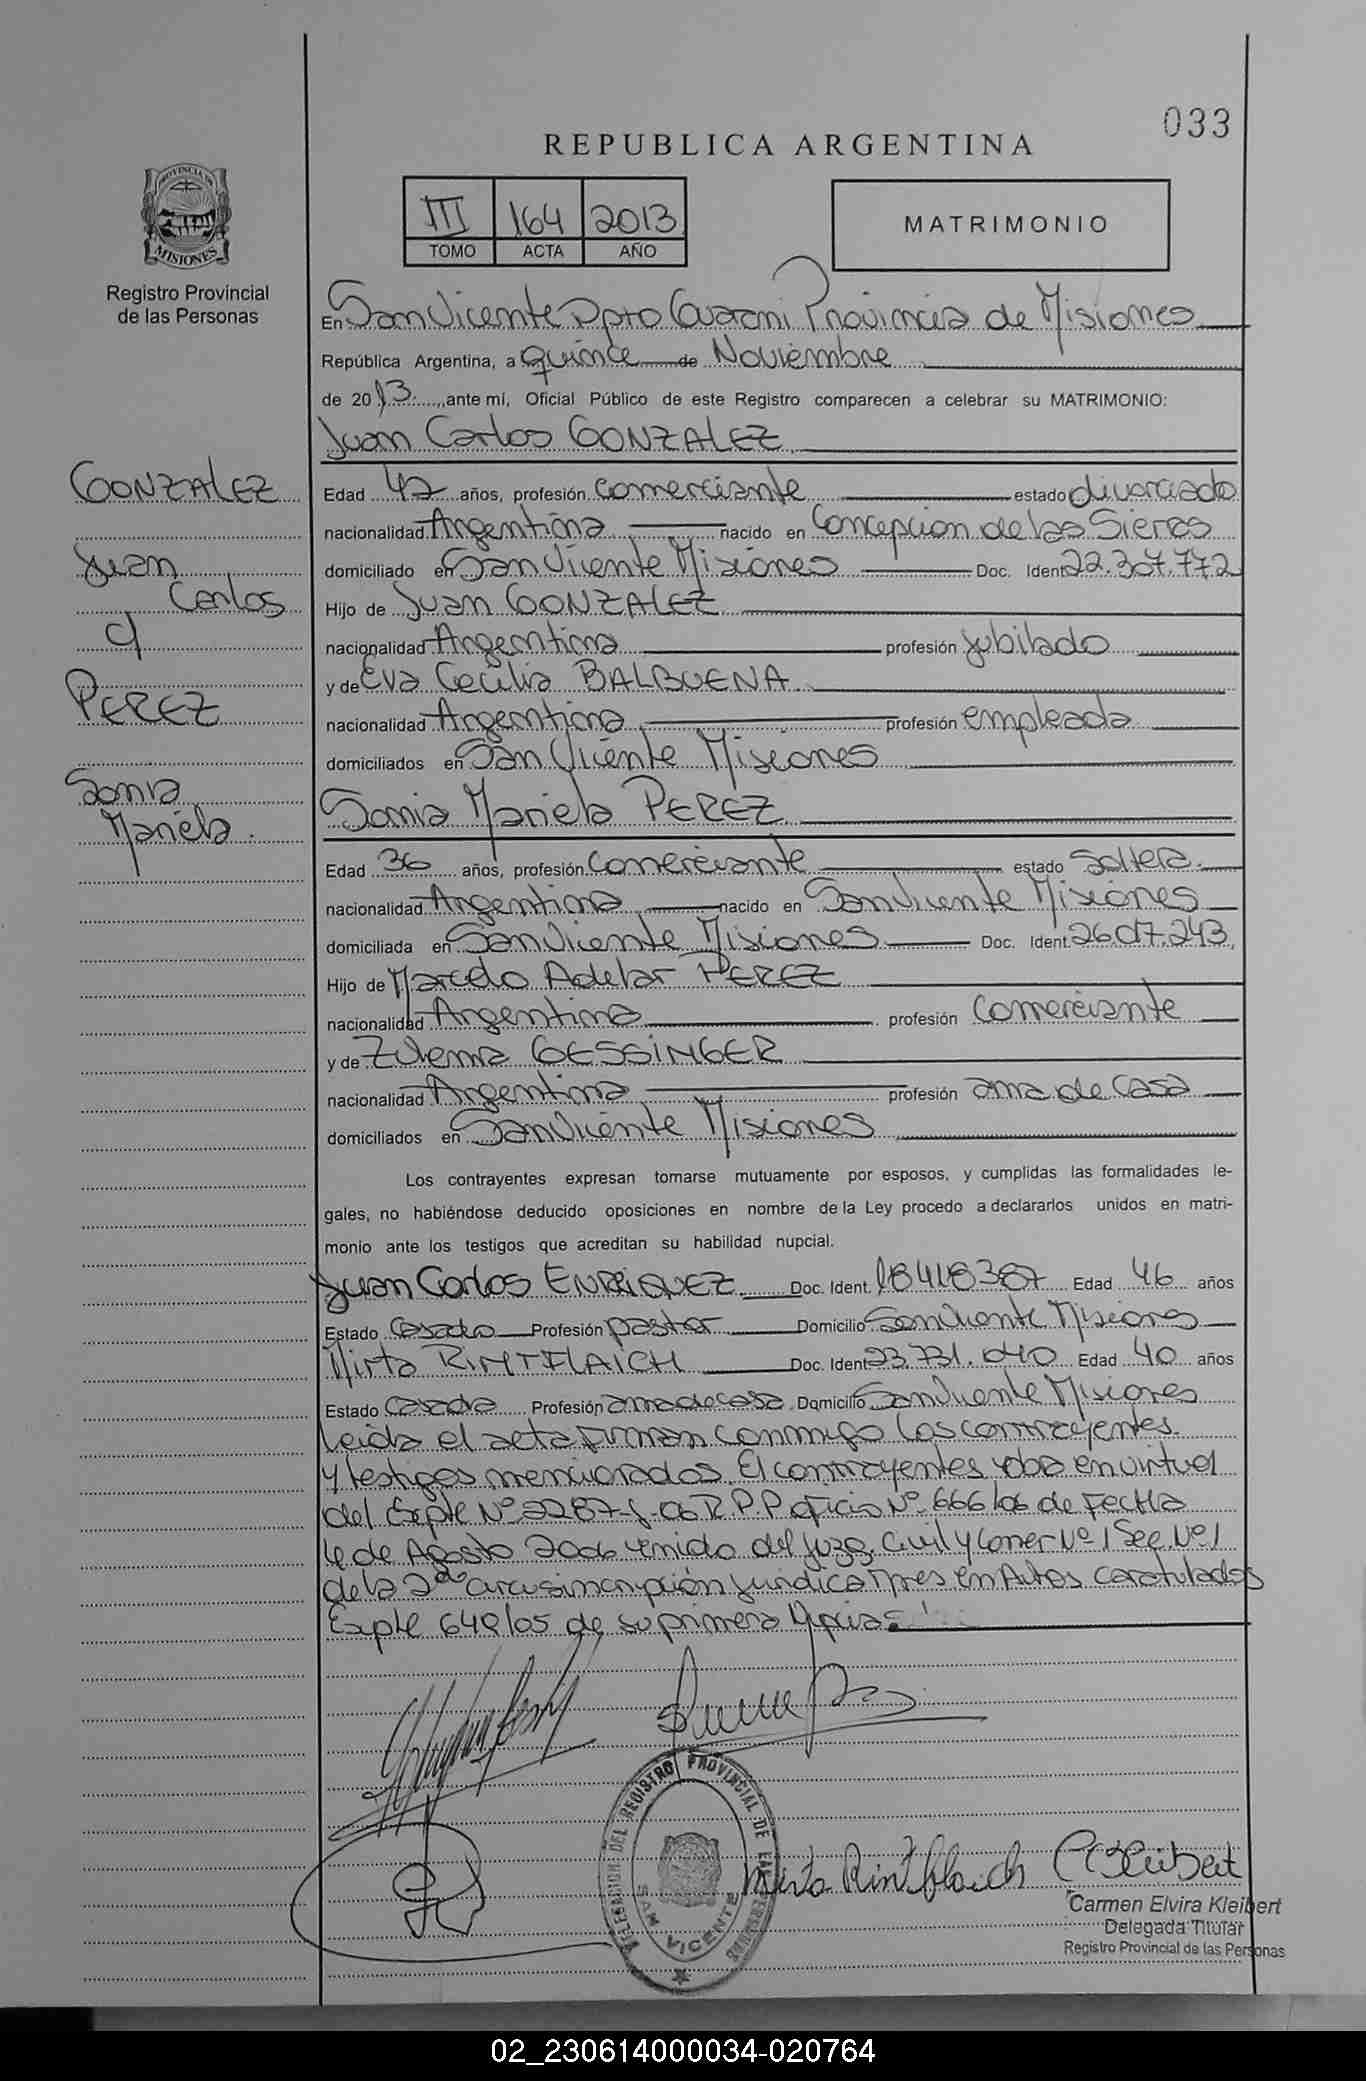 033
REPUBLICA ARGENTINA
PROVINCIA DE
MISIONES
Registro Provincial
de las Personas
III 164 2013
TOMO ACTA AÑO
MATRIMONIO
En San Vicente Dpto Guarani Provincia de Misiones
República Argentina, a quince de Noviembre
de 2013, ante mí, Oficial Público de este Registro comparecen a celebrar su MATRIMONIO:
Juan Carlos GONZALEZ
GONZALEZ
Juan
Carlos
c/
PEREZ
Sonia
Mariela.
Edad 42 años, profesión comerciante estado divorciado
nacionalidad Argentina nacido en Concepcion de las Sieras
domiciliado en San Vicente Misiones Doc. Ident 22.307.772
Hijo de Juan GONZALEZ
nacionalidad Argentina profesión jubilado
y de Eva Cecilia BALBUENA
nacionalidad Argentina profesión empleada
domiciliados en San Vicente Misiones
Sonia Mariela PEREZ
Edad 36 años, profesión comerciante estado Soltera.
nacionalidad Argentina nacido en San Vicente Misiones
domiciliada en San Vicente Misiones Doc. Ident. 26.017.243
Hijo de Marcelo Adelar PEREZ
nacionalidad Argentina profesión comerciante
y de Zulema GESSINGER
nacionalidad Argentina profesión ama de casa
domiciliados en San Vicente Misiones
Los contrayentes expresan tomarse mutuamente por esposos, y cumplidas las formalidades le-
gales, no habiéndose deducido oposiciones en nombre de la Ley procedo a declararlos unidos en matri-
monio ante los testigos que acreditan su habilidad nupcial.
Juan Carlos ENRIQUEZ Doc. Ident. 18418387 Edad 46 años
Estado Casado Profesión pastor Domicilio San Vicente Misiones
Mirta RINTFLAICH Doc. Ident 23.731.040 Edad 40 años
Estado Casada Profesión ama de casa Domicilio San Vicente Misiones
Leida el acta firman conmigo los contrayentes
y testigos mencionados. El contrayentes en virtud
del Expte Nº 2287-J-06 R.P.P oficio Nº 666/06 de Fecha
4 de Agosto 2006 venido del Juzg. Civil y Comer Nº 1 Sec. Nº 1
de la 2da circunsimcripción Juridica en Autos Caratulados
Expte 648/05 de su primera
DELEGACION DEL REGISTRO PROVINCIAL DE LAS PERSONAS
SAN VICENTE
Mirta Rintflaich
C E Kleibert
Carmen Elvira Kleibert
Delegada Titular
Registro Provincial de las Personas
02_230614000034-020764